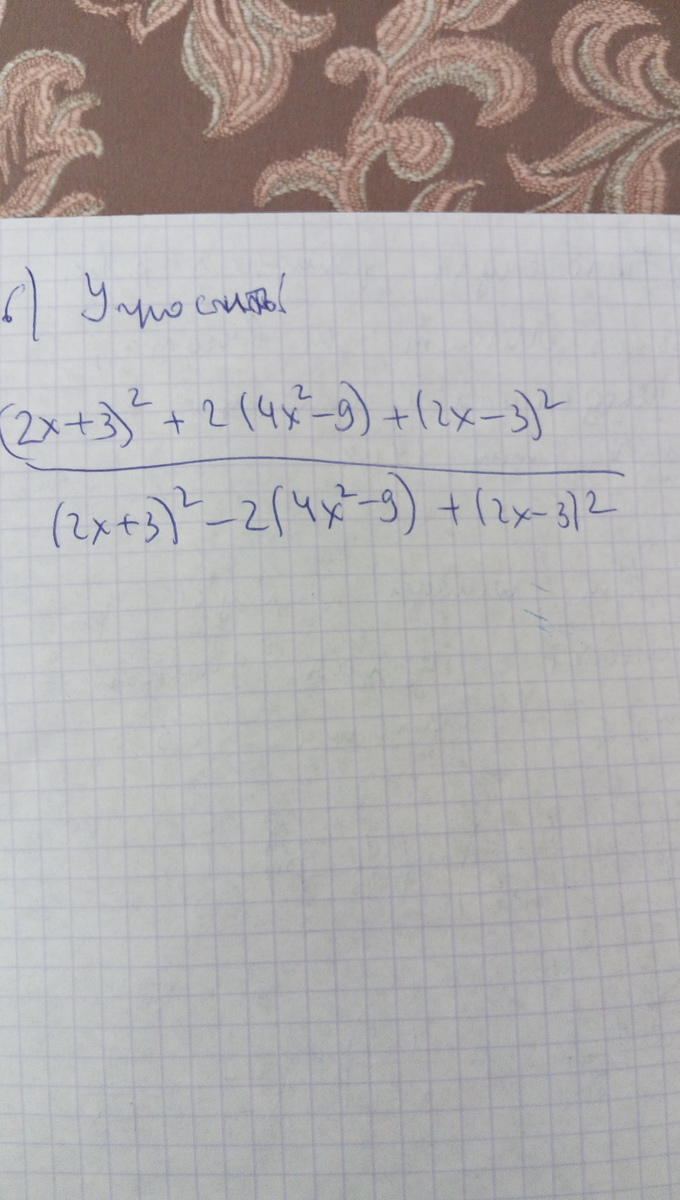 б) Упростить
(2x+3)² + 2(4x²-9) + (2x-3)²
(2x+3)² - 2(4x²-9) + (2x-3)²